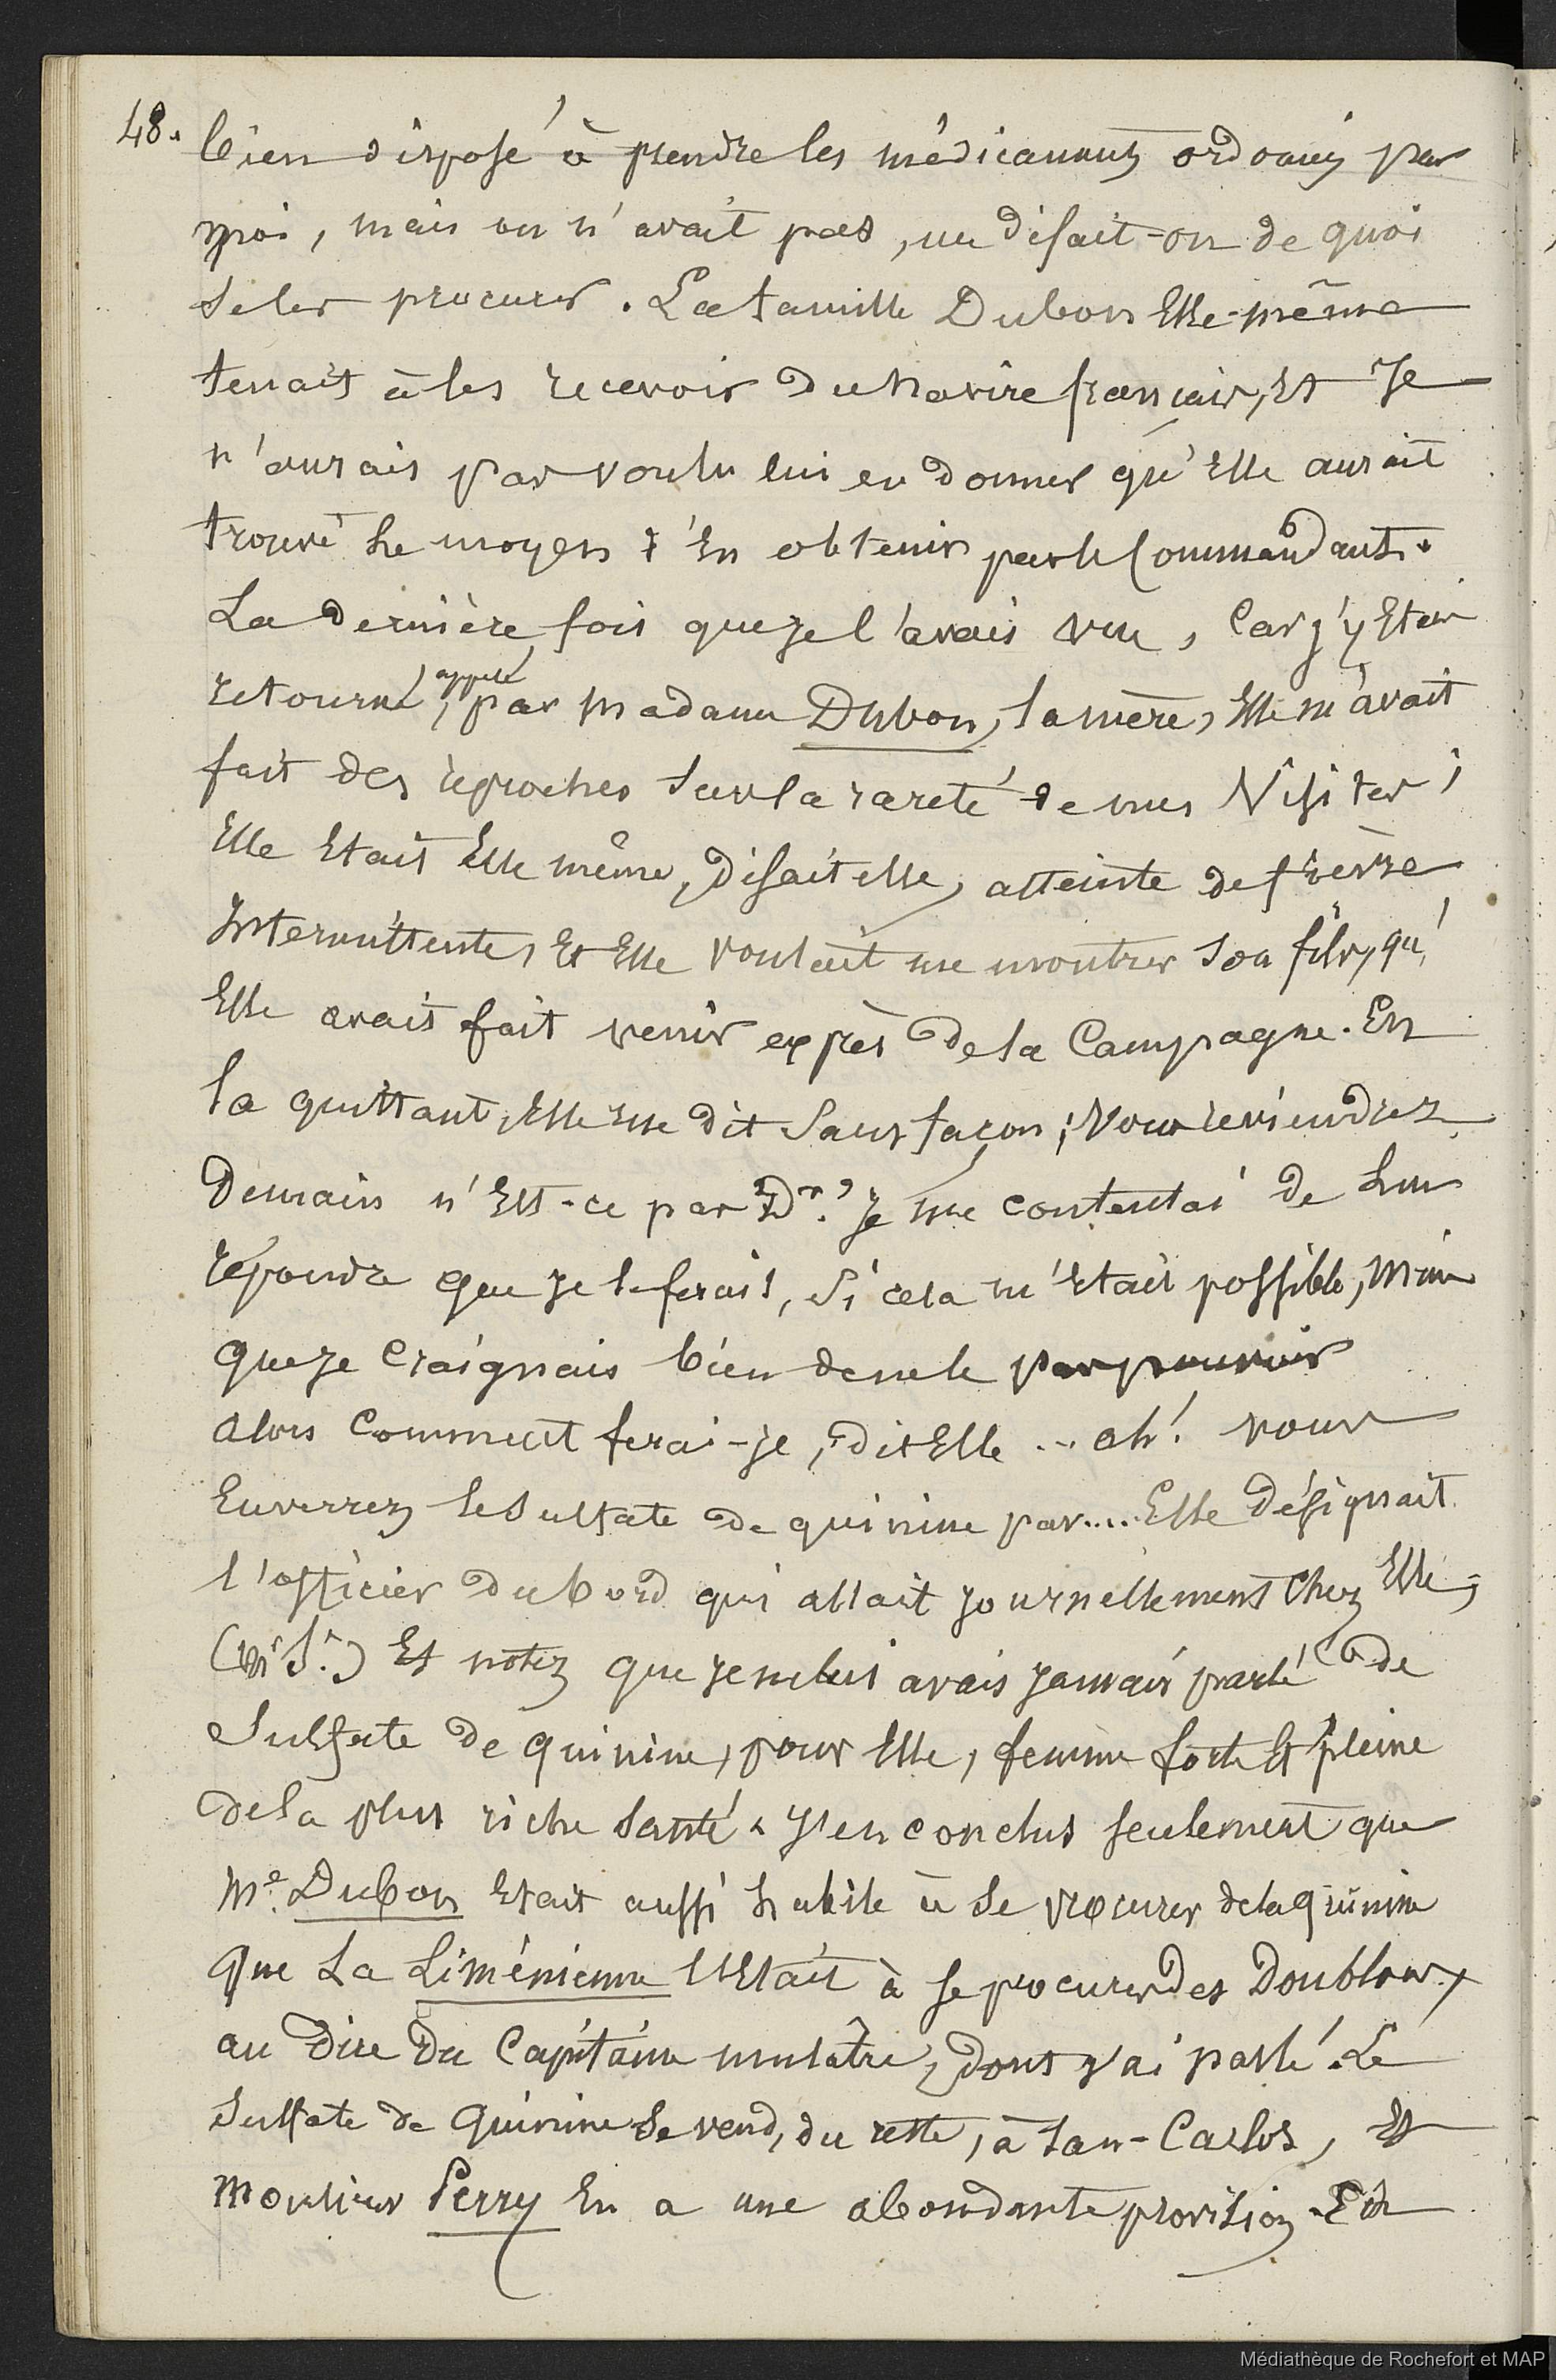 48. bien disposé à prendre les médicaments ordonnés par
moi, mais on n'avait pas, me disait-on de quoi
se les procurer. La famille Dubon Elle-même
tenait à les recevoir du navire français, Et Je
n'aurais pas voulu lui en donner qu'Elle aurait
trouvé le moyen d'En obtenir par le Commandant.
La dernière fois que je l'avais vue, Car j'y Etais
retourné, appelé par madame Dubon, la mère, Elle m'avait
fait des reproches sur la rareté de mes Visites;
Elle Etait Elle même, disait elle, atteinte de fièvre
Intermittente, Et Elle voulait me montrer son fils, qu'
Elle avait fait venir exprès de la Campagne. En
la quittant, Elle me dit sans façon; Vous reviendrez
Demain n'Est-ce pas Dr.? Je me contentai de lui
répondre que Je le ferais, si cela m'était possible, mais
que je craignais bien de ne le pas pouvoir
alors comment ferai-je, dit Elle ... ah! vous
Enverrez le Sulfate de quinine par.... Elle désignait
l'officier du bord qui allait journellement chez Elle;
(Mr S.) Et notez que je ne lui avais jamais parlé de
Sulfate de quinine, pour Elle, femme forte Et pleine
de la plus riche santé. J'en conclus seulement que
Me. Dubon Etait aussi habile à se procurer de la quinine
que La Liménienne l'Etait à se procurer des Doublons,
au dire du Capitaine mulâtre, dont j'ai parlé. Le
Sulfate de Quinine se vend, du reste, à San-Carlos, Et
Monsieur Perry En a une abondante provision. En
Médiathèque de Rochefort et MAP